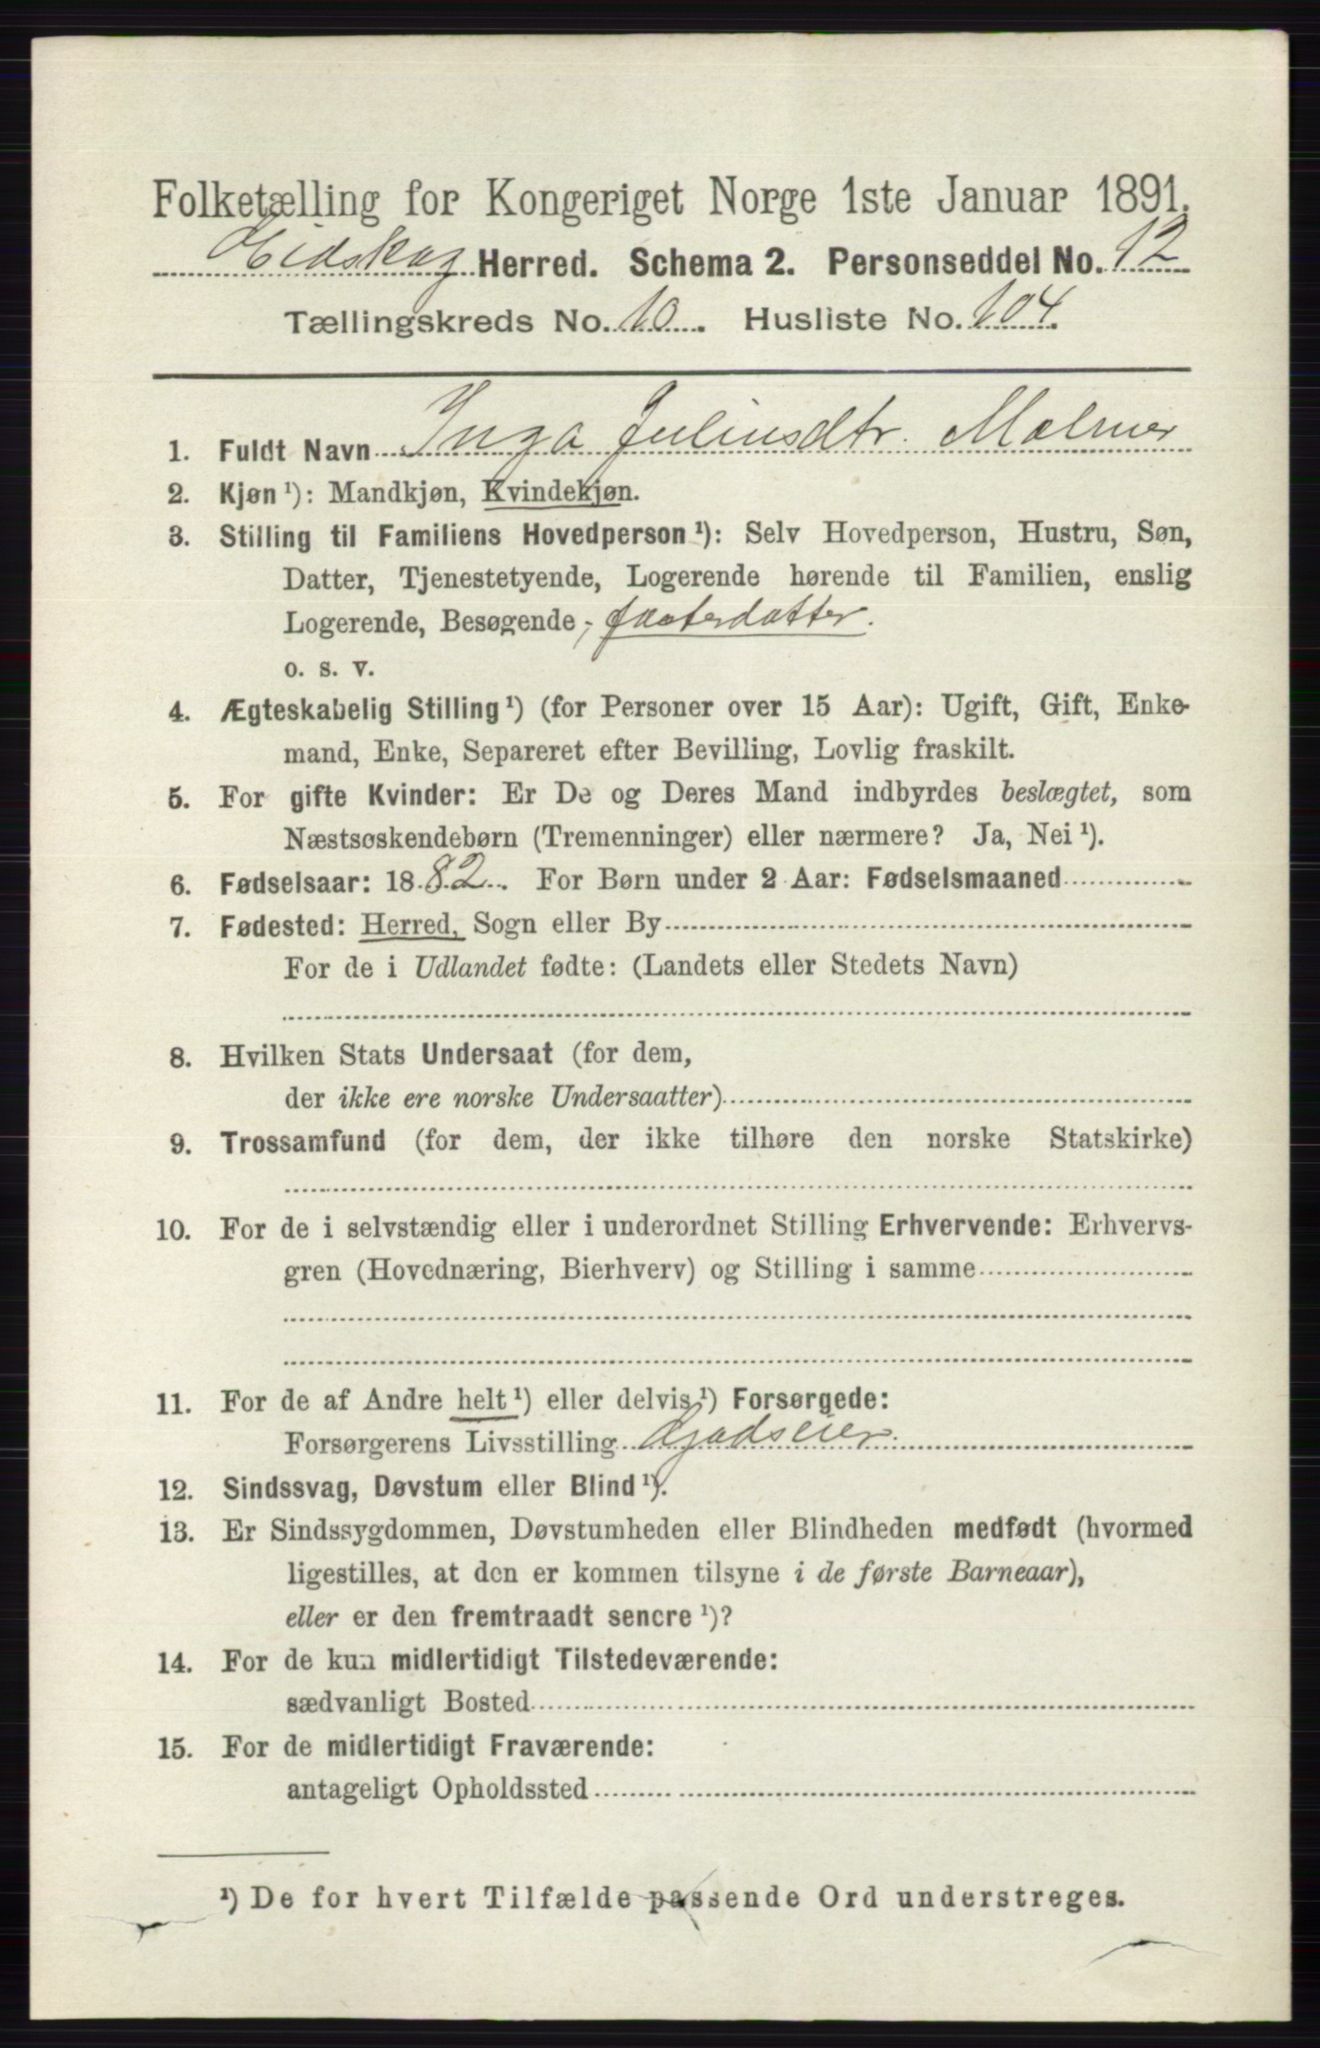 Folketælling for Kongeriget Norge 1ste Januar 1891.
Eidskog Herred. Schema 2. Personseddel No. 12
Tællingskreds No. 10. Husliste No. 104.
1. Fuldt Navn Inga Juliusdtr. Malmer
2. Kjøn ¹): Mandkjøn, Kvindekjøn.
3. Stilling til Familiens Hovedperson ¹): Selv Hovedperson, Hustru, Søn,
Datter, Tjenestetyende, Logerende hørende til Familien, enslig
Logerende, Besøgende, fosterdatter.
o. s. v.
4. Ægteskabelig Stilling ¹) (for Personer over 15 Aar): Ugift, Gift, Enke-
mand, Enke, Separeret efter Bevilling, Lovlig fraskilt.
5. For gifte Kvinder: Er De og Deres Mand indbyrdes beslægtet, som
Næstsøskendebørn (Tremenninger) eller nærmere? Ja, Nei ¹).
6. Fødselsaar: 1882. For Børn under 2 Aar: Fødselsmaaned
7. Fødested: Herred, Sogn eller By
For de i Udlandet fødte: (Landets eller Stedets Navn)
8. Hvilken Stats Undersaat (for dem,
der ikke ere norske Undersaatter)
9. Trossamfund (for dem, der ikke tilhøre den norske Statskirke)
10. For de i selvstændig eller i underordnet Stilling Erhvervende: Erhvervs-
gren (Hovednæring, Bierhverv) og Stilling i samme
11. For de af Andre helt ¹) eller delvis ¹) Forsørgede:
Forsørgerens Livsstilling Gadseier.
12. Sindssvag, Døvstum eller Blind ¹).
13. Er Sindssygdommen, Døvstumheden eller Blindheden medfødt (hvormed
ligestilles, at den er kommen tilsyne i de første Barneaar),
eller er den fremtraadt senere ¹)?
14. For de kun midlertidigt Tilstedeværende:
sædvanligt Bosted
15. For de midlertidigt Fraværende:
antageligt Opholdssted
¹) De for hvert Tilfælde passende Ord understreges.